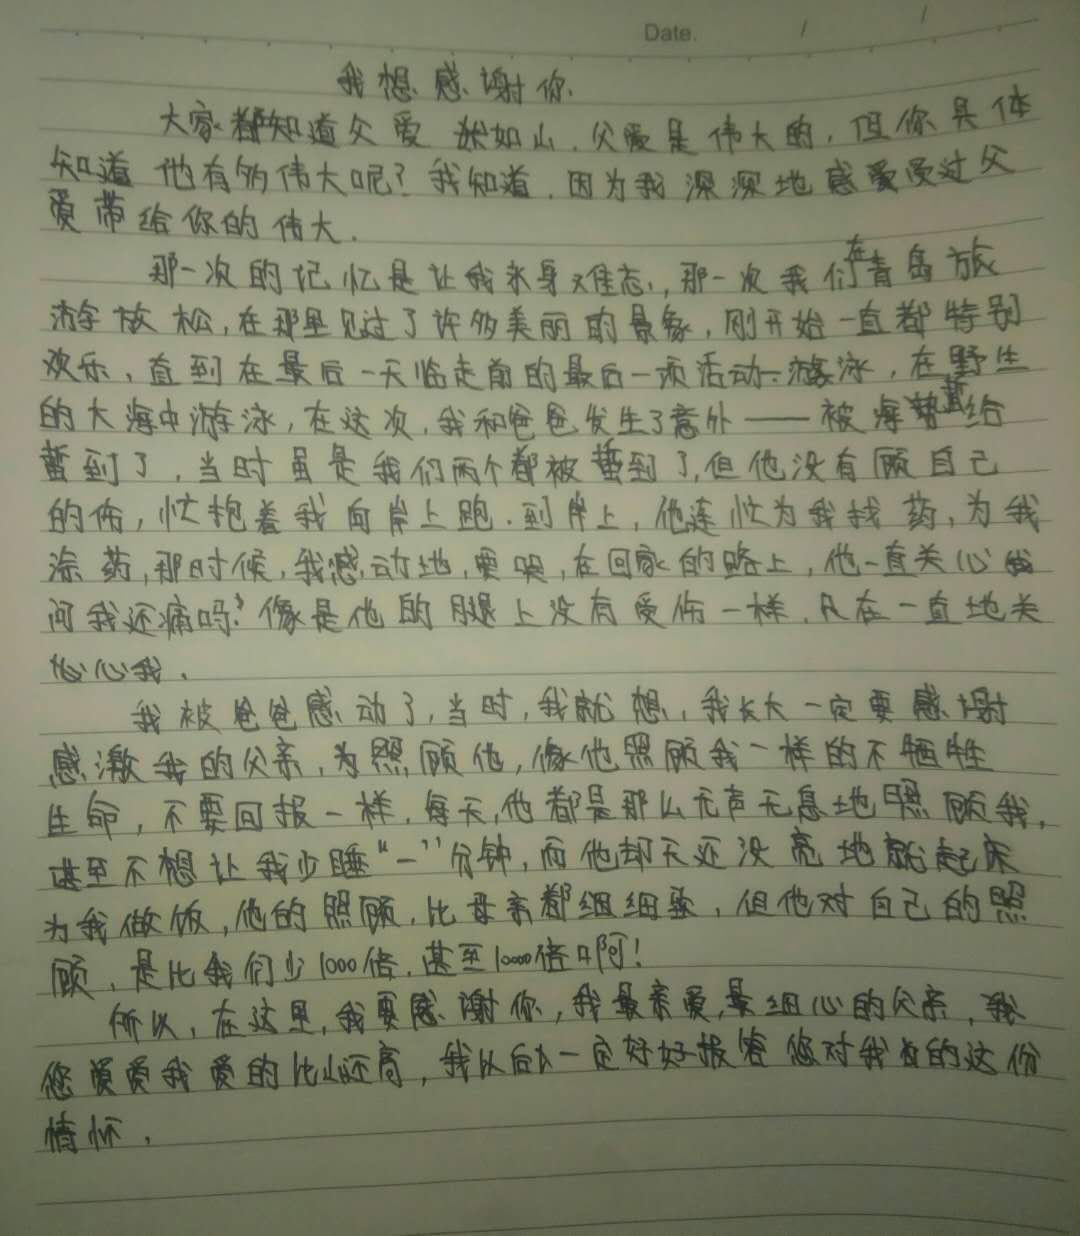 Date. / /
我想感谢你.
大家都知道父爱如山.父爱是伟大的,但你具体
知道他有多伟大呢?我知道.因为我深深地感受过父
爱带给你的伟大.
那一次的记忆是让我终身难忘,那一次我们在青岛旅
游放松,在那里见过了许多美丽的景象,刚开始一直都特别
欢乐,直到在最后一天临走前的最后一项活动:游泳,在野生
的大海中游泳,在这次,我和爸爸发生了意外——被海蜇给
蜇到了,当时虽是我们两个都被蜇到了,但他没有顾自己
的伤,忙抱着我向岸上跑.到岸上,他连忙为我找药,为我
涂药,那时候,我感动地要哭,在回家的路上,他一直关心我
问我还痛吗?像是他的腿上没有受伤一样.只在一直地关
心心我.
我被爸爸感动了,当时,我就想,我长大一定要感谢
感激我的父亲,为照顾他,像他照顾我一样的不牺牲
生命,不要回报一样.每天,他都是那么无声无息地照顾我,
甚至不想让我少睡“一”分钟,而他却天还没亮地就起床
为我做饭,他的照顾,比母亲都细细致,但他对自己的照
顾,是比我们少1000倍.甚至10000倍啊!
所以,在这里,我要感谢你,我最亲爱,最细心的父亲,我
您爱我爱的比山还高,我以后一定好好报答您对我的这份
情怀.